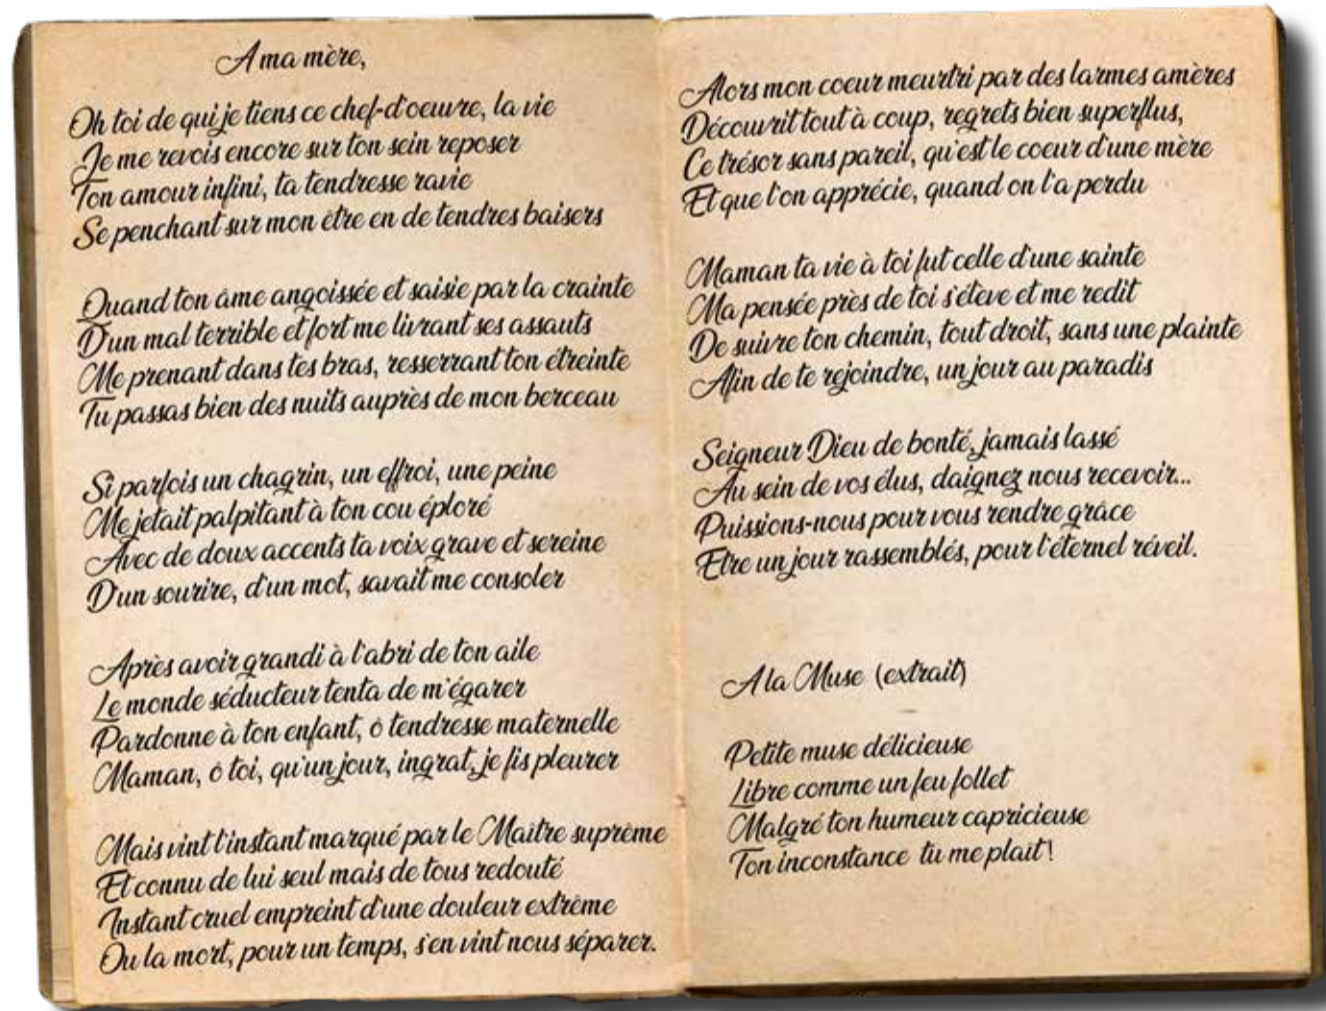 A ma mère,
Oh toi de qui je tiens ce chef-d'oeuvre, la vie
Je me revois encore sur ton sein reposer
Ton amour infini, ta tendresse ravie
Se penchant sur mon être en de tendres baisers
Quand ton âme angoissée et saisie par la crainte
D'un mal terrible et fort me livrant ses assauts
Me prenant dans tes bras, resserrant ton étreinte
Tu passas bien des nuits auprès de mon berceau
Si parfois un chagrin, un effroi, une peine
Me jetait palpitant à ton cou éploré
Avec de doux accents ta voix grave et sereine
D'un sourire, d'un mot, savait me consoler
Après avoir grandi à l'abri de ton aile
Le monde séducteur tenta de m'égarer
Pardonne à ton enfant, ô tendresse maternelle
Maman, ô toi, qu'un jour, ingrat, je fis pleurer
Mais vint l'instant marqué par le Maître suprême
Et connu de lui seul mais de tous redouté
Instant cruel empreint d'une douleur extrême
Ou la mort, pour un temps, s'en vint nous séparer.
Alors mon coeur meurtri par des larmes amères
Découvrit tout à coup, regrets bien superflus,
Ce trésor sans pareil, qu'est le coeur d'une mère
Et que l'on apprécie, quand on l'a perdu
Maman ta vie à toi fut celle d'une sainte
Ma pensée près de toi s'élève et me redit
De suivre ton chemin, tout droit, sans une plainte
Afin de te rejoindre, un jour au paradis
Seigneur Dieu de bonté, jamais lassé
Au sein de vos élus, daignez nous recevoir...
Puissions-nous pour vous rendre grâce
Etre un jour rassemblés, pour l'éternel réveil.
A la Muse (extrait)
Petite muse délicieuse
Libre comme un feu follet
Malgré ton humeur capricieuse
Ton inconstance tu me plaît !